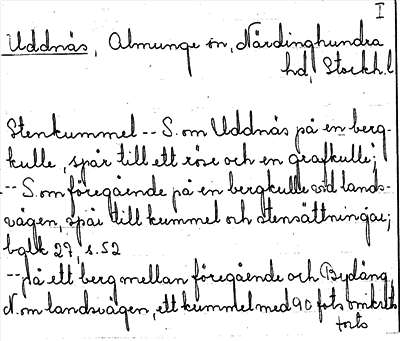 I
Uddnäs, Almunge sn, Närdinghundra
hd, Stockh.l
Stenkummel -- S. om Uddnäs på en berg-
kulle, spår till ett röse och en grafkulle;
-- S. om föregående på en bergkulle vid lands-
vägen, spår till kummel och stensättningar;
bglk 27, s. 52
-- på ett berg mellan föregående och Bydäng,
N. om landsvägen, ett kummel med 90 fots omkrets
forts